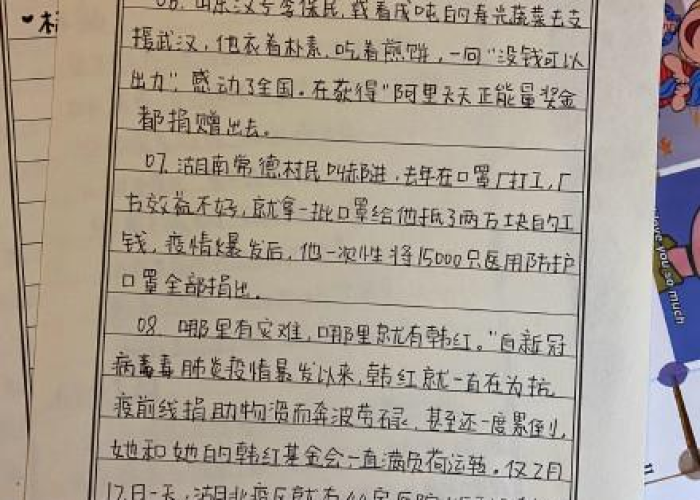 06. 山东汉子李保民,载着成吨自的寿光蔬菜去支
援武汉,他衣着朴素,吃着煎饼,一向“没钱可以
出力”,感动了全国。在获得“阿里天天正能量奖金
都捐赠出去。
07. 湖南常德村民叫郝进,去年在口罩厂打工,厂
方效益不好,就拿一批口罩给他抵了两万块的工
钱,疫情爆发后,他一次性将15000只医用防护
口罩全部捐出。
08. 哪里有灾难,哪里就有韩红。”自新冠
病毒毒肺炎疫情暴发以来,韩红就一直在为抗
疫前线捐助物资而奔波劳碌,甚至还一度累倒,
她和她的韩红基金会一直满负荷运转。仅2月
17日一天,湖北疫区就有
love you so much